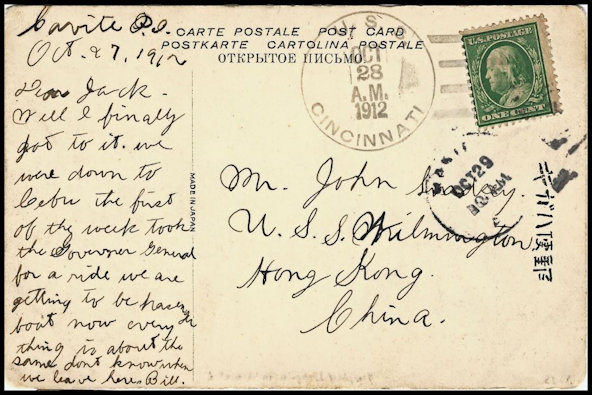 Cavite P.I.
Oct. 27, 1912
CARTE POSTALE POST CARD
POSTKARTE CARTOLINA POSTALE
ОТКРЫТОЕ ПИСЬМО
U.S.S.
OCT
28
A.M.
1912
CINCINNATI
ONE CENT
OCT 29
Dear Jack.
Well I finally
got to it. we
were down to
Cebu the first
of thy week took
the Governer General
for a ride we are
getting to be passenger
boat now every
thing is about the
same dont know when
we leave here Bill.
MADE IN JAPAN
Mr. John
U.S.S. Wilmington
Hong Kong.
China.